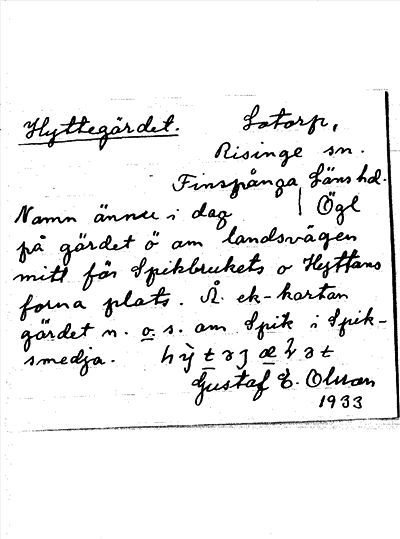 Hyttegärdet. Lotorp,
Risinge sn.
Finspånga Läns hd.
Namn ännu i dag | Ögl
på gärdet ö om landsvägen
mitt för Spikbrukets o Hyttans
forna plats. Å. ek-kartan
gärdet n. o. s. om Spik i Spik-
smedja.
Gustaf E. Olsson
1933